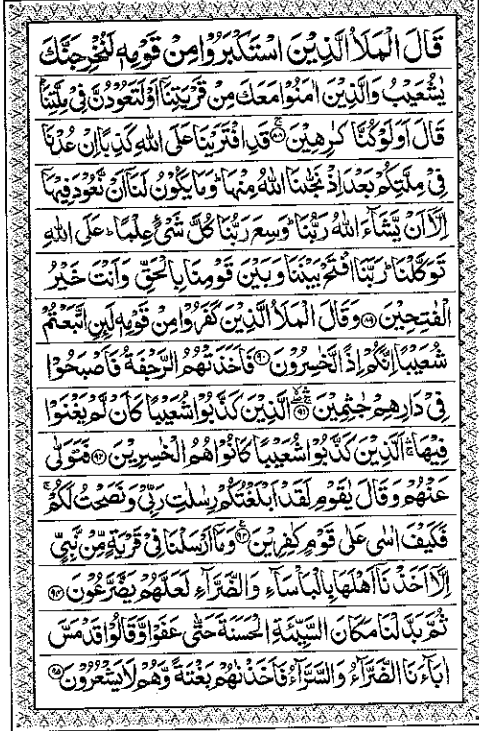 قَالَ الْمَلَاُ الَّذِيْنَ اسْتَكْبَرُوْا مِنْ قَوْمِهٖ لَنُخْرِجَنَّكَ
يٰشُعَيْبُ وَالَّذِيْنَ اٰمَنُوْا مَعَكَ مِنْ قَرْيَتِنَاۤ اَوْ لَتَعُوْدُنَّ فِيْ مِلَّتِنَا
قَالَ اَوَلَوْ كُنَّا كٰرِهِيْنَ ۟ۚ۸۸ قَدِ افْتَرَيْنَا عَلَى اللّٰهِ كَذِبًا اِنْ عُدْنَا
فِيْ مِلَّتِكُمْ بَعْدَ اِذْ نَجّٰىنَا اللّٰهُ مِنْهَا ؕ وَمَا يَكُوْنُ لَنَاۤ اَنْ نَّعُوْدَ فِيْهَاۤ
اِلَّاۤ اَنْ يَّشَآءَ اللّٰهُ رَبُّنَا ؕ وَسِعَ رَبُّنَا كُلَّ شَيْءٍ عِلْمًا ؕ عَلَى اللّٰهِ
تَوَكَّلْنَا ؕ رَبَّنَا افْتَحْ بَيْنَنَا وَبَيْنَ قَوْمِنَا بِالْحَقِّ وَاَنْتَ خَيْرُ
الْفٰتِحِيْنَ ۸۹ وَقَالَ الْمَلَاُ الَّذِيْنَ كَفَرُوْا مِنْ قَوْمِهٖ لَىِٕنِ اتَّبَعْتُمْ
شُعَيْبًا اِنَّكُمْ اِذًا لَّخٰسِرُوْنَ ۹۰ فَاَخَذَتْهُمُ الرَّجْفَةُ فَاَصْبَحُوْا
فِيْ دَارِهِمْ جٰثِمِيْنَ ۹۱ الَّذِيْنَ كَذَّبُوْا شُعَيْبًا كَاَنْ لَّمْ يَغْنَوْا
فِيْهَا ۚ اَلَّذِيْنَ كَذَّبُوْا شُعَيْبًا كَانُوْا هُمُ الْخٰسِرِيْنَ ۹۲ فَتَوَلّٰى
عَنْهُمْ وَقَالَ يٰقَوْمِ لَقَدْ اَبْلَغْتُكُمْ رِسٰلٰتِ رَبِّيْ وَنَصَحْتُ لَكُمْ ۚ
فَكَيْفَ اٰسٰى عَلٰى قَوْمٍ كٰفِرِيْنَ ۹۳ وَمَاۤ اَرْسَلْنَا فِيْ قَرْيَةٍ مِّنْ نَّبِيٍّ
اِلَّاۤ اَخَذْنَاۤ اَهْلَهَا بِالْبَاْسَآءِ وَالضَّرَّآءِ لَعَلَّهُمْ يَضَّرَّعُوْنَ ۹۴
ثُمَّ بَدَّلْنَا مَكَانَ السَّيِّئَةِ الْحَسَنَةَ حَتّٰى عَفَوْا وَّقَالُوْا قَدْ مَسَّ
اٰبَآءَنَا الضَّرَّآءُ وَالسَّرَّآءُ فَاَخَذْنٰهُمْ بَغْتَةً وَّهُمْ لَا يَشْعُرُوْنَ ۹۵